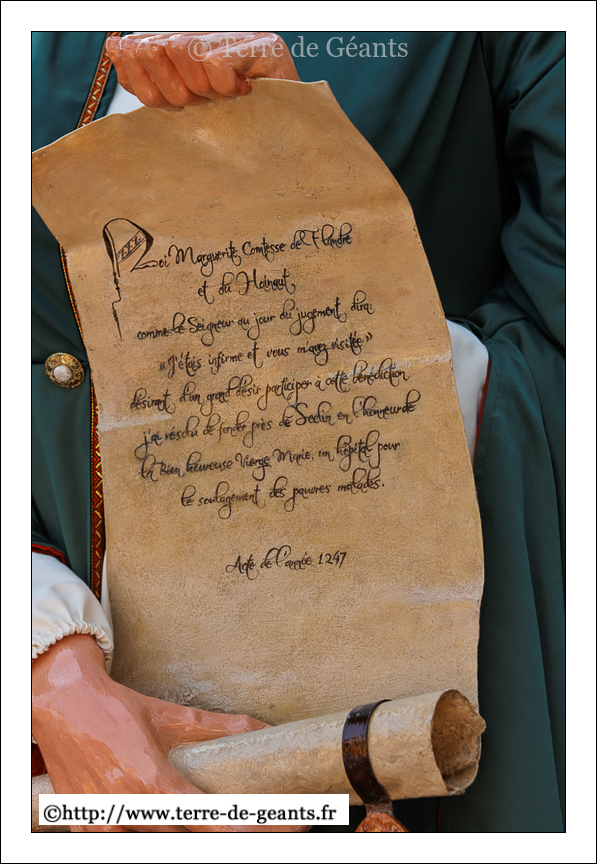 © Terre de Géants
Moi Marguerite, Comtesse de Flandre
et du Hainaut
comme le Seigneur au jour du jugement dira
« J'étais infirme et vous m'avez visitée »
désirant d'un grand désir participer à cette bénédiction
j'ai résolu de fonder près de Seclin en l'honneur de
la Bien heureuse Vierge Marie, un hôpital pour
le soulagement des pauvres malades.
Acte de l'année 1247
©http://www.terre-de-geants.fr